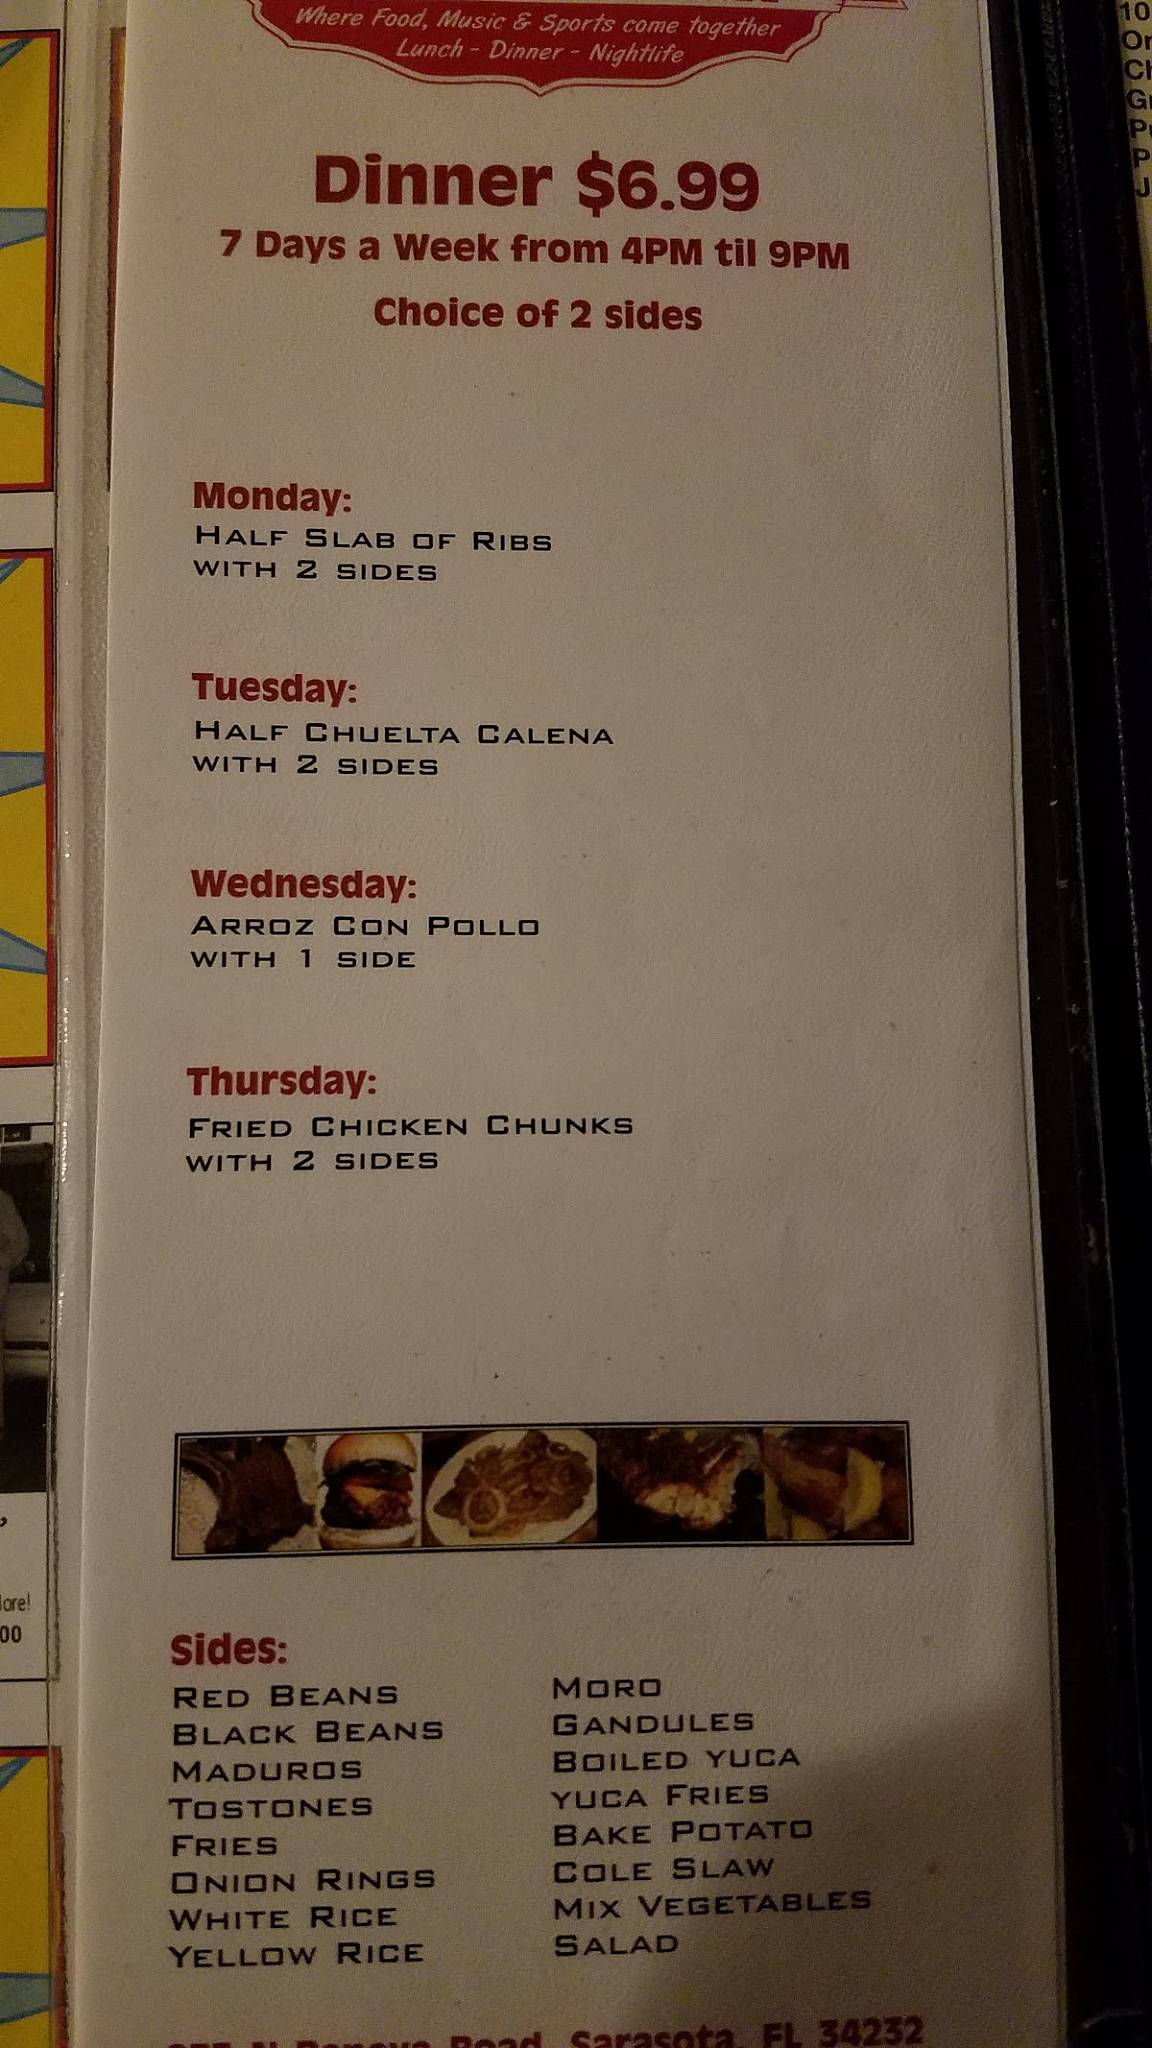 Where Food, Music & Sports come together
Lunch - Dinner - Nightlife
Dinner $6.99
7 Days a Week from 4PM til 9PM
Choice of 2 sides
Monday:
HALF SLAB OF RIBS
WITH 2 SIDES
Tuesday:
HALF CHUELTA CALENA
WITH 2 SIDES
Wednesday:
ARROZ CON POLLO
WITH 1 SIDE
Thursday:
FRIED CHICKEN CHUNKS
WITH 2 SIDES
Sides:
RED BEANS
BLACK BEANS
MADUROS
TOSTONES
FRIES
ONION RINGS
WHITE RICE
YELLOW RICE
MORO
GANDULES
BOILED YUCA
YUCA FRIES
BAKE POTATO
COLE SLAW
MIX VEGETABLES
SALAD
N Road, Sarasota, FL 34232
10
00